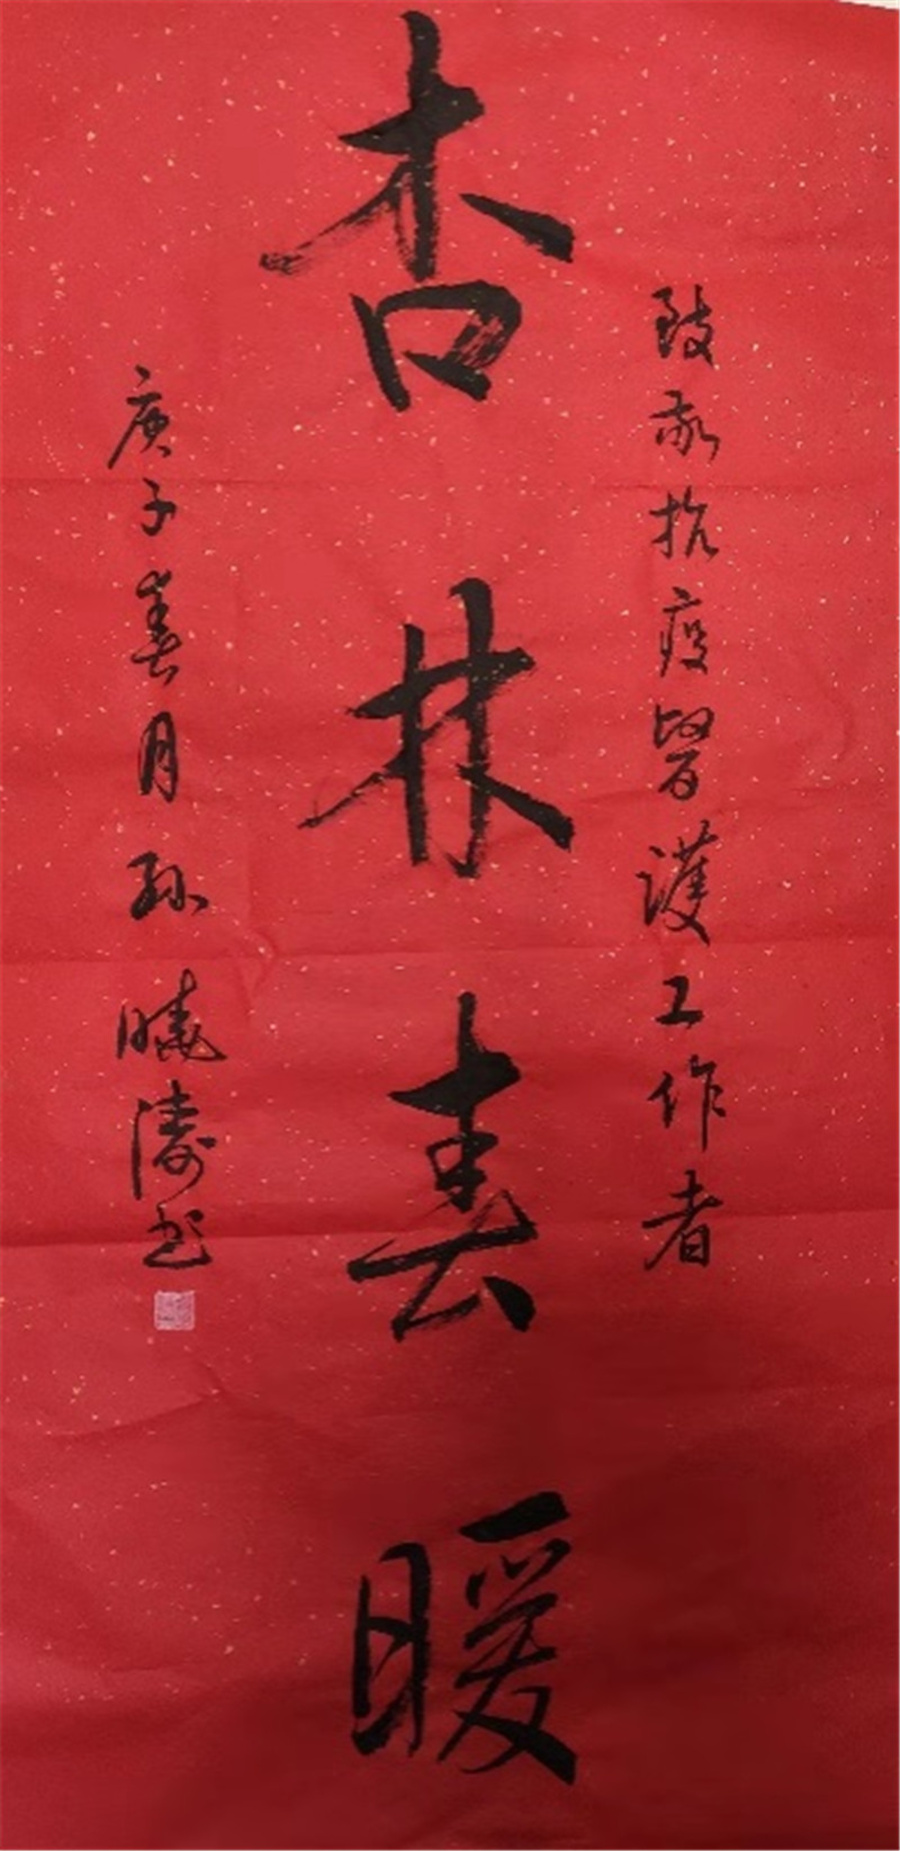 致敬抗疫醫護工作者
杏林春暖
庚子春月孙曉濤书